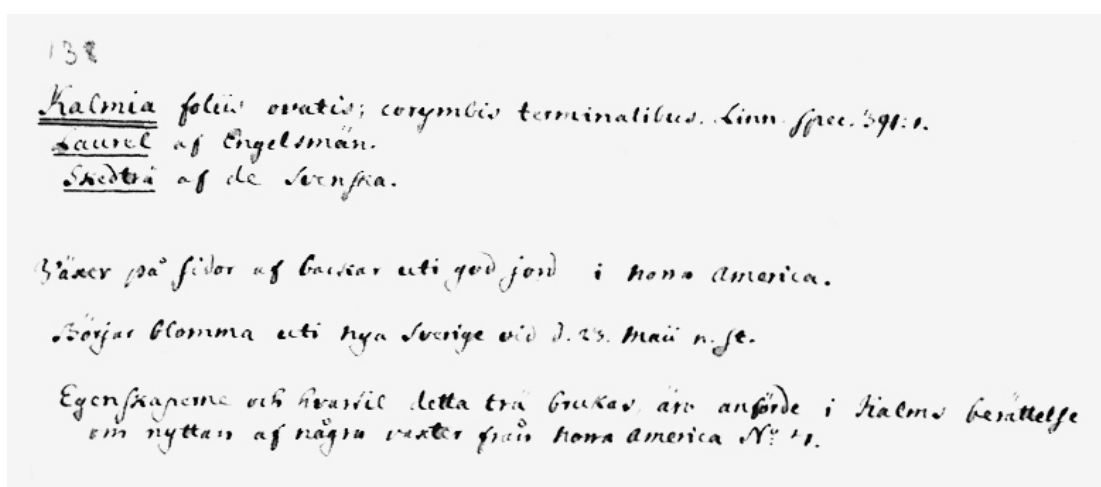 138
Kalmia foliis ovatis; corymbis terminalibus. Linn. spec. 391:1.
Laurel af Engelsmän.
Skedträ af de Svenska.
Växer på sidor af backar uti god jord i norra America.
Börjar blomma uti nya Sverige vid d. 23. Maii n. st.
Egenskaperne och hvartil detta trä brukas, äro anförde i Kalms berättelse
om nyttan af några växter från norra America N:o